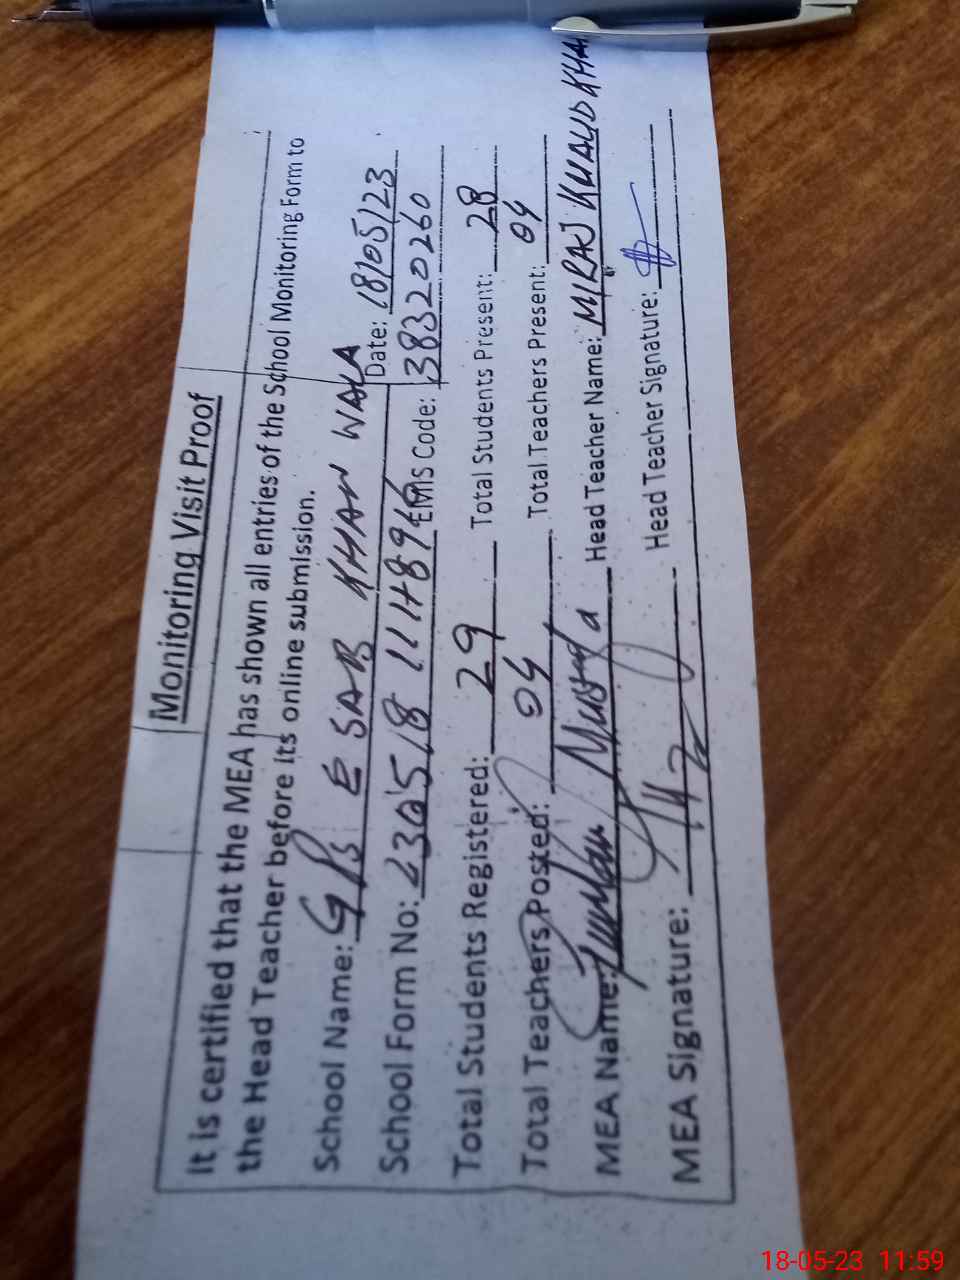 Monitoring Visit Proof
It is certified that the MEA has shown all entries of the School Monitoring Form to
the Head Teacher before its online submission.
School Name: GPS E SAB KHAN WALA Date: 18/05/23
School Form No: EMIS Code: 38320260
Total Students Registered: 29 Total Students Present: 28
Total Teachers Posted: 04 Total Teachers Present: 04
MEA Name: Head Teacher Name: MIRAJ KHALID KHAN
MEA Signature: Head Teacher Signature:
18-05-23 11:59